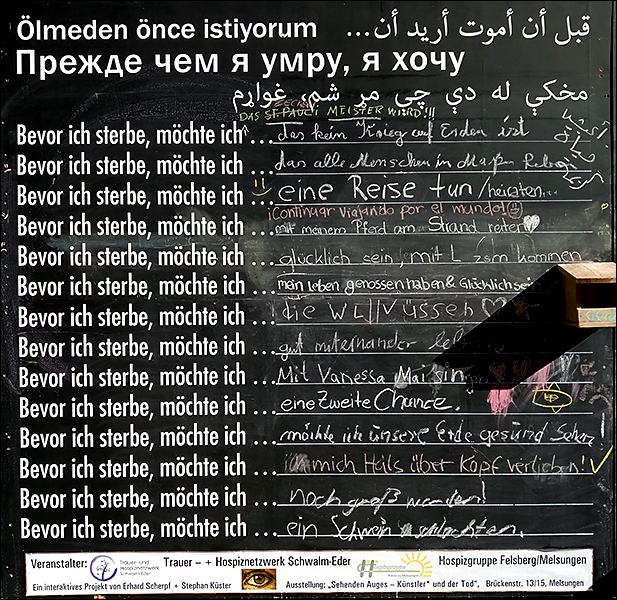 Ölmeden önce istiyorum
قبل أن أموت أريد أن...
Прежде чем я умру, я хочу
مخکې له دې چې مړ شم، غواړم
DAS ST. PAULI MEISTER WIRD!!!
Bevor ich sterbe, möchte ich ... das kein Krieg auf Erden ist
Bevor ich sterbe, möchte ich ... das alle Menschen in Maßen Leben
Bevor ich sterbe, möchte ich ... eine Reise tun /heiraten...
¡Continuar viajando por el mundo!
Bevor ich sterbe, möchte ich ... mit meinem Pferd am Strand reiten
Bevor ich sterbe, möchte ich ... glücklich sein, mit L zsm kommen
Bevor ich sterbe, möchte ich ... mein leben genossen haben & Glücklich sein
Bevor ich sterbe, möchte ich ... die
Bevor ich sterbe, möchte ich ... gut miteinander
Bevor ich sterbe, möchte ich ... Mit Vanessa Mai
Bevor ich sterbe, möchte ich ... eine Zweite Chance.
Bevor ich sterbe, möchte ich ... möchte ich unsere Erde gesund Sehen
Bevor ich sterbe, möchte ich ... mich Hals über Kopf verlieben!
Bevor ich sterbe, möchte ich ... noch groß werden!
Bevor ich sterbe, möchte ich ... ein Schwein schlachten.
Veranstalter: Trauer- und Hospiznetzwerk Schwalm-Eder Trauer – + Hospiznetzwerk Schwalm-Eder Hospizgruppe Hospizgruppe Felsberg/Melsungen
Ein interaktives Projekt von Erhard Scherpf + Stephan Küster Ausstellung: „Sehenden Auges – Künstler* und der Tod“, Brückenstr. 13/15, Melsungen